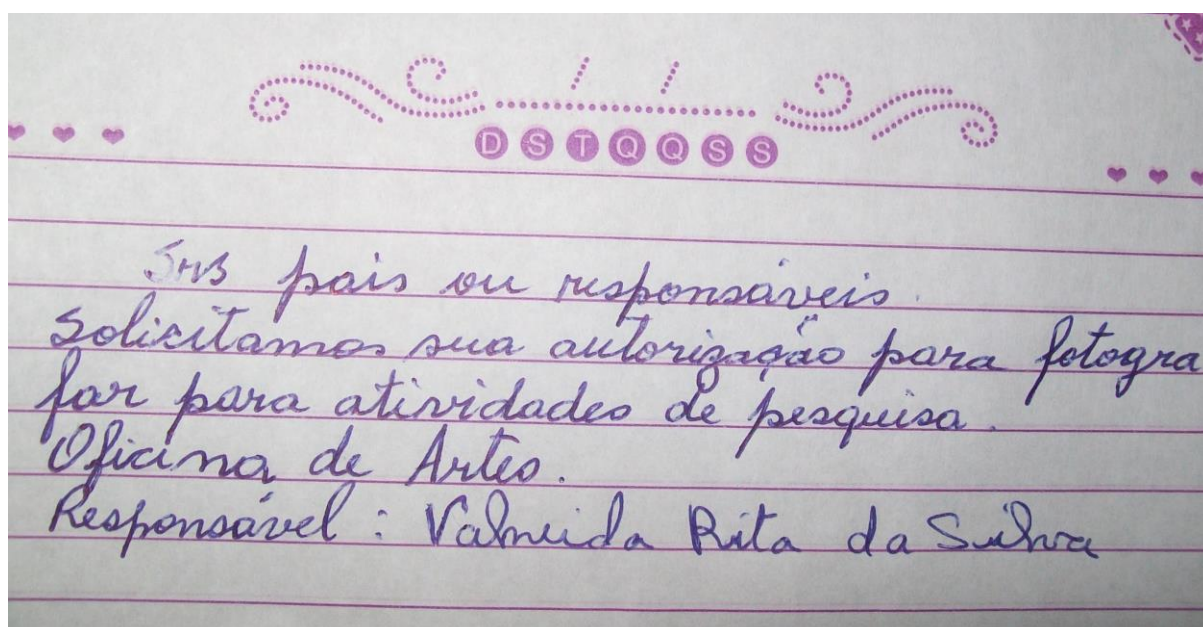 D S T Q Q S S
Srs pais ou responsáveis.
Solicitamos sua autorização para fotogra
far para atividades de pesquisa.
Oficina de Artes.
Responsável: Valmeida Rita da Silva